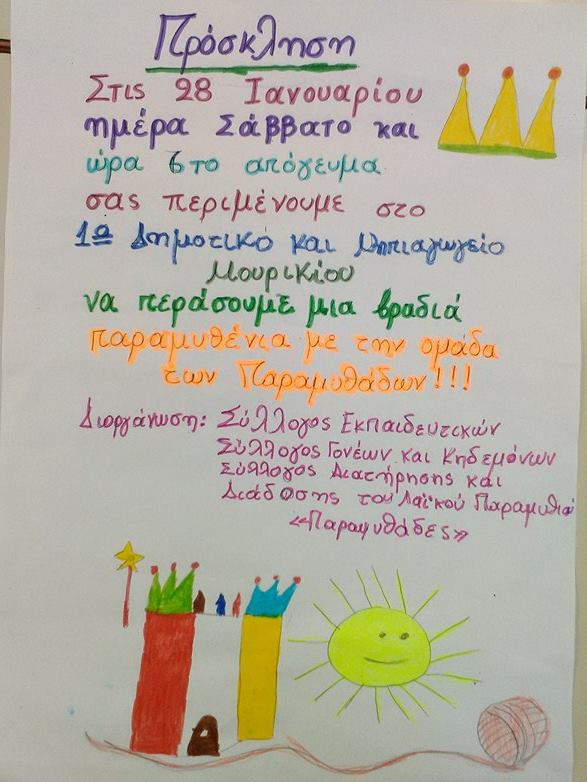 Πρόσκληση
Στις 28 Ιανουαρίου
ημέρα Σάββατο και
ώρα 6 το απόγευμα
σας περιμένουμε στο
1ο Δημοτικό και Νηπιαγωγείο
Μουρικίου
να περάσουμε μια βραδιά
παραμυθένια με την ομάδα
των Παραμυθάδων!!!
Διοργάνωση: Σύλλογος Εκπαιδευτικών
Σύλλογος Γονέων και Κηδεμόνων
Σύλλογος Διατήρησης και
Διάδοσης του Λαϊκού Παραμυθιού
«Παραμυθάδες»